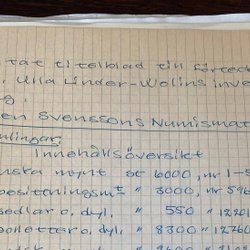 titat titelblad till förtec
. Ulla Linder-Welins inve
g.
en Svenssons Numismat
mlingar.
Innehållsöversikt
nska mynt st 6000, nr 1-5
besittningsmt " 3000, nr 596
sedlar o. dyl. " 550 " 1220
polletter o. dyl. " 8300 " 12760